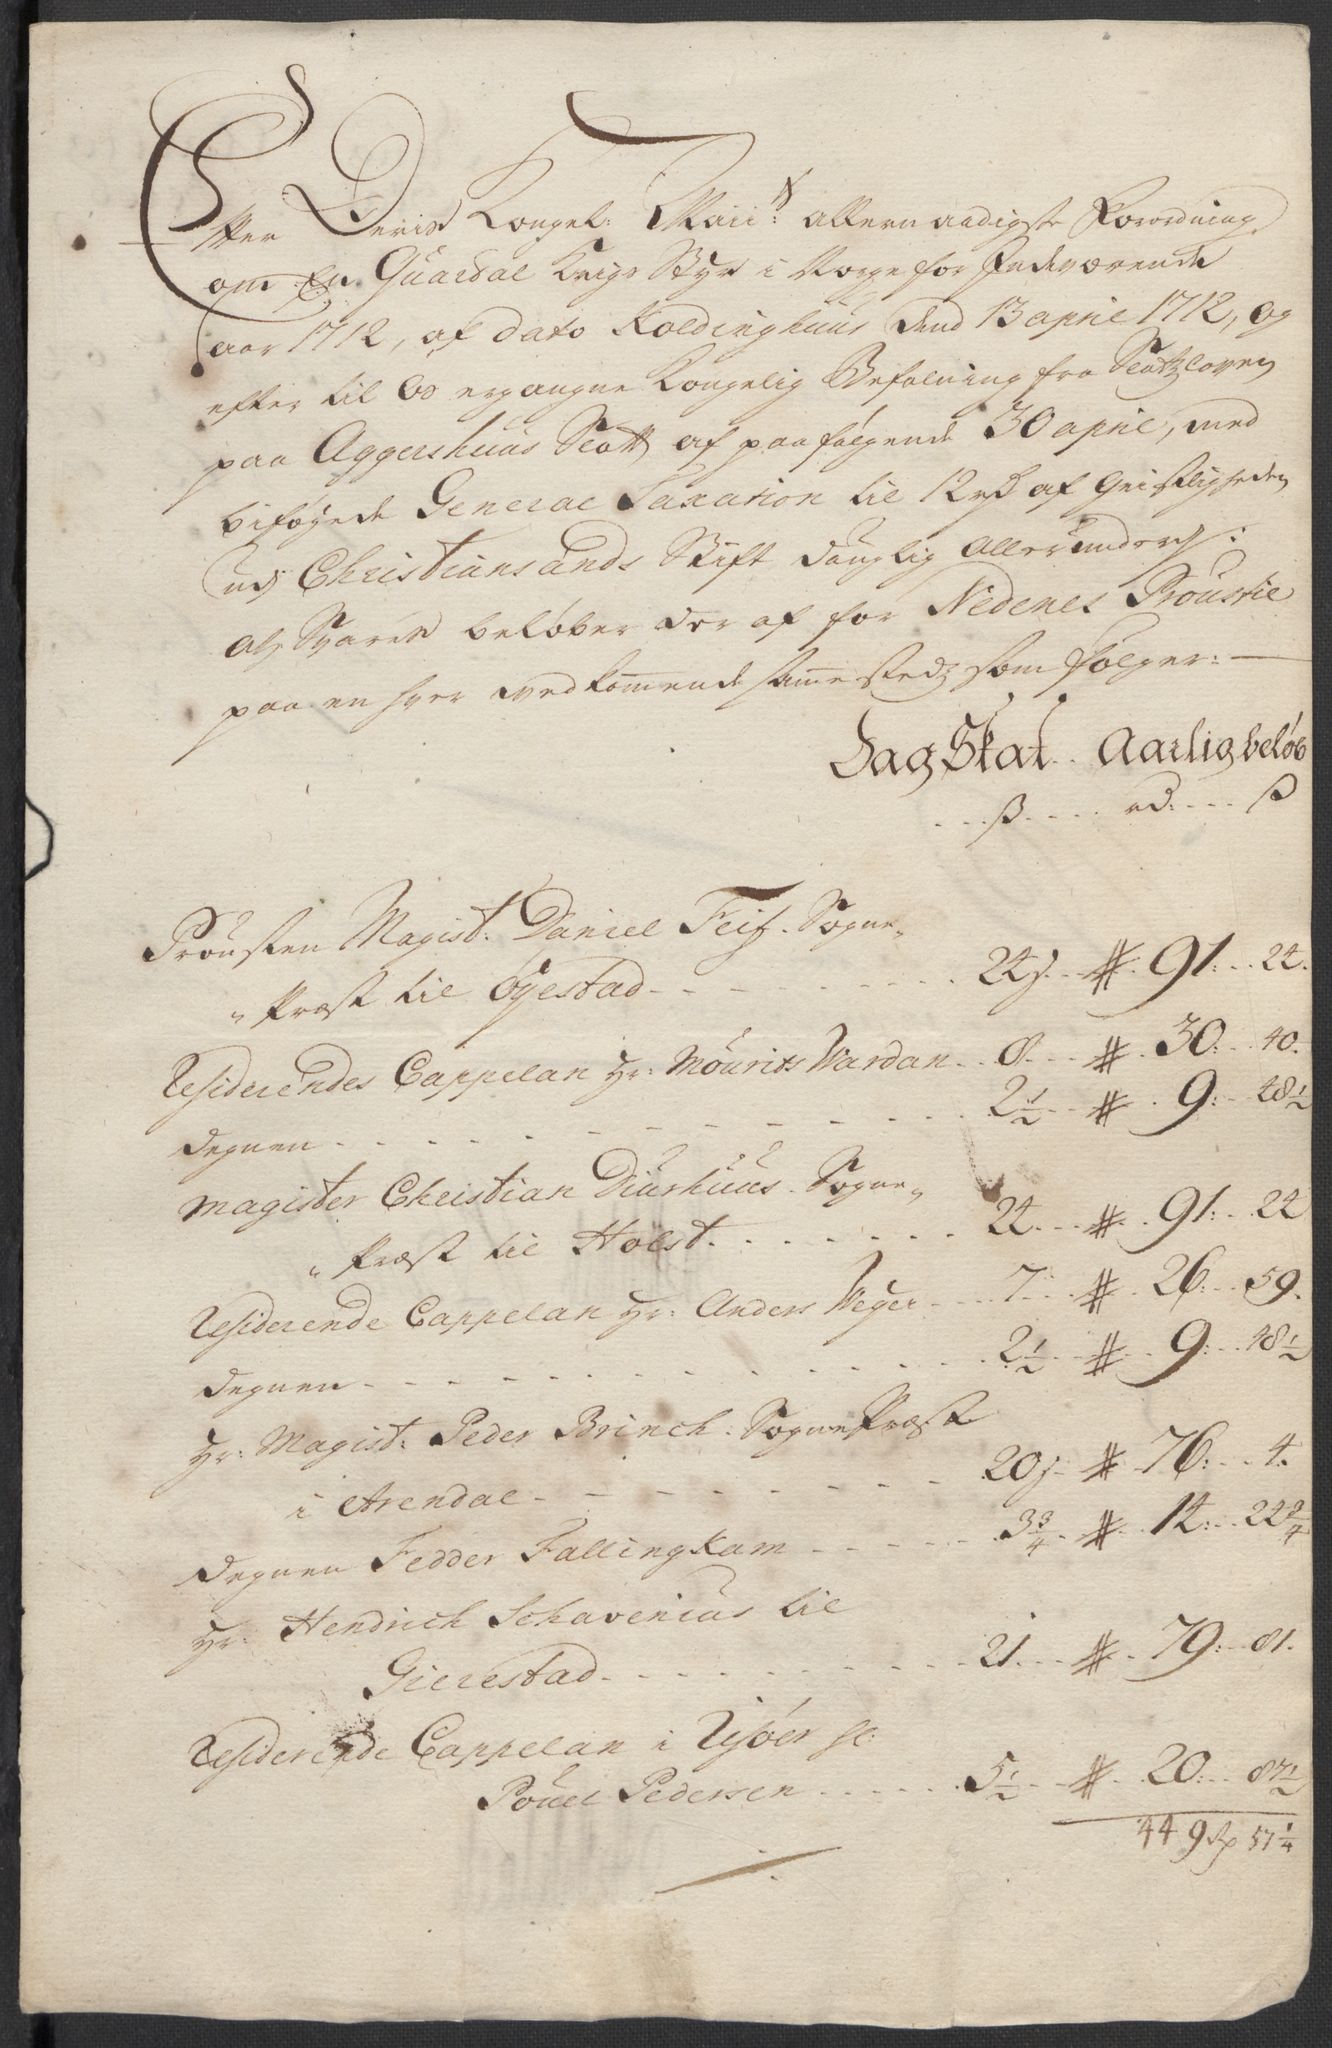 Efter Deris Kongel: Maiits: allernaadigste Forordning
om En Quardal Krigs Styr i Norge for Indeværende
aar 1712, af dato Koldinghuus dend 13 april 1712, og
efter til os ergangne Kongelig Befalning fra Slotzloven
paa Aggershuus Slott af paafølgende 30 april, med
biføyede General Taxation til 12 rd af Geistligheden
udj Christiansands Stift dauglig
at Svaris beløber der af for Nedenes Proustie
paa en hver vedkommende sammestedz som følger:
Dag Skat. Aarlig beløb
ß rd: ß
Prousten Magist: Daniel Feif. Sogne-
Præst til Øyestad 24 # 91: 24.
Residerendes Cappelan Hr: Mourits Wardan 8 # 30: 40.
Degnen 2 1/2 # 9: 48 1/2
Magister Christian Diurhuus. Sogne-
Præst til Holst 24 # 91: 24
Residerende Cappelan Hr: Anders Weyer 7 # 26: 59.
Degnen 2 1/2 # 9: 48 1/2
Hr: Magist: Peder Brinch. SognePræst
i Arendal 20 # 76: 4.
Degnen Fedder Fallingkam 3 3/4 # 14: 24 2/4
Hr: Hendrich Schavenius til
Gierestad 21 # 79: 81.
Residerende Cappelan i Risøer Hr:
Pouel Pedersen 5 1/2 # 20: 87 1/2
449 rd 57 1/4